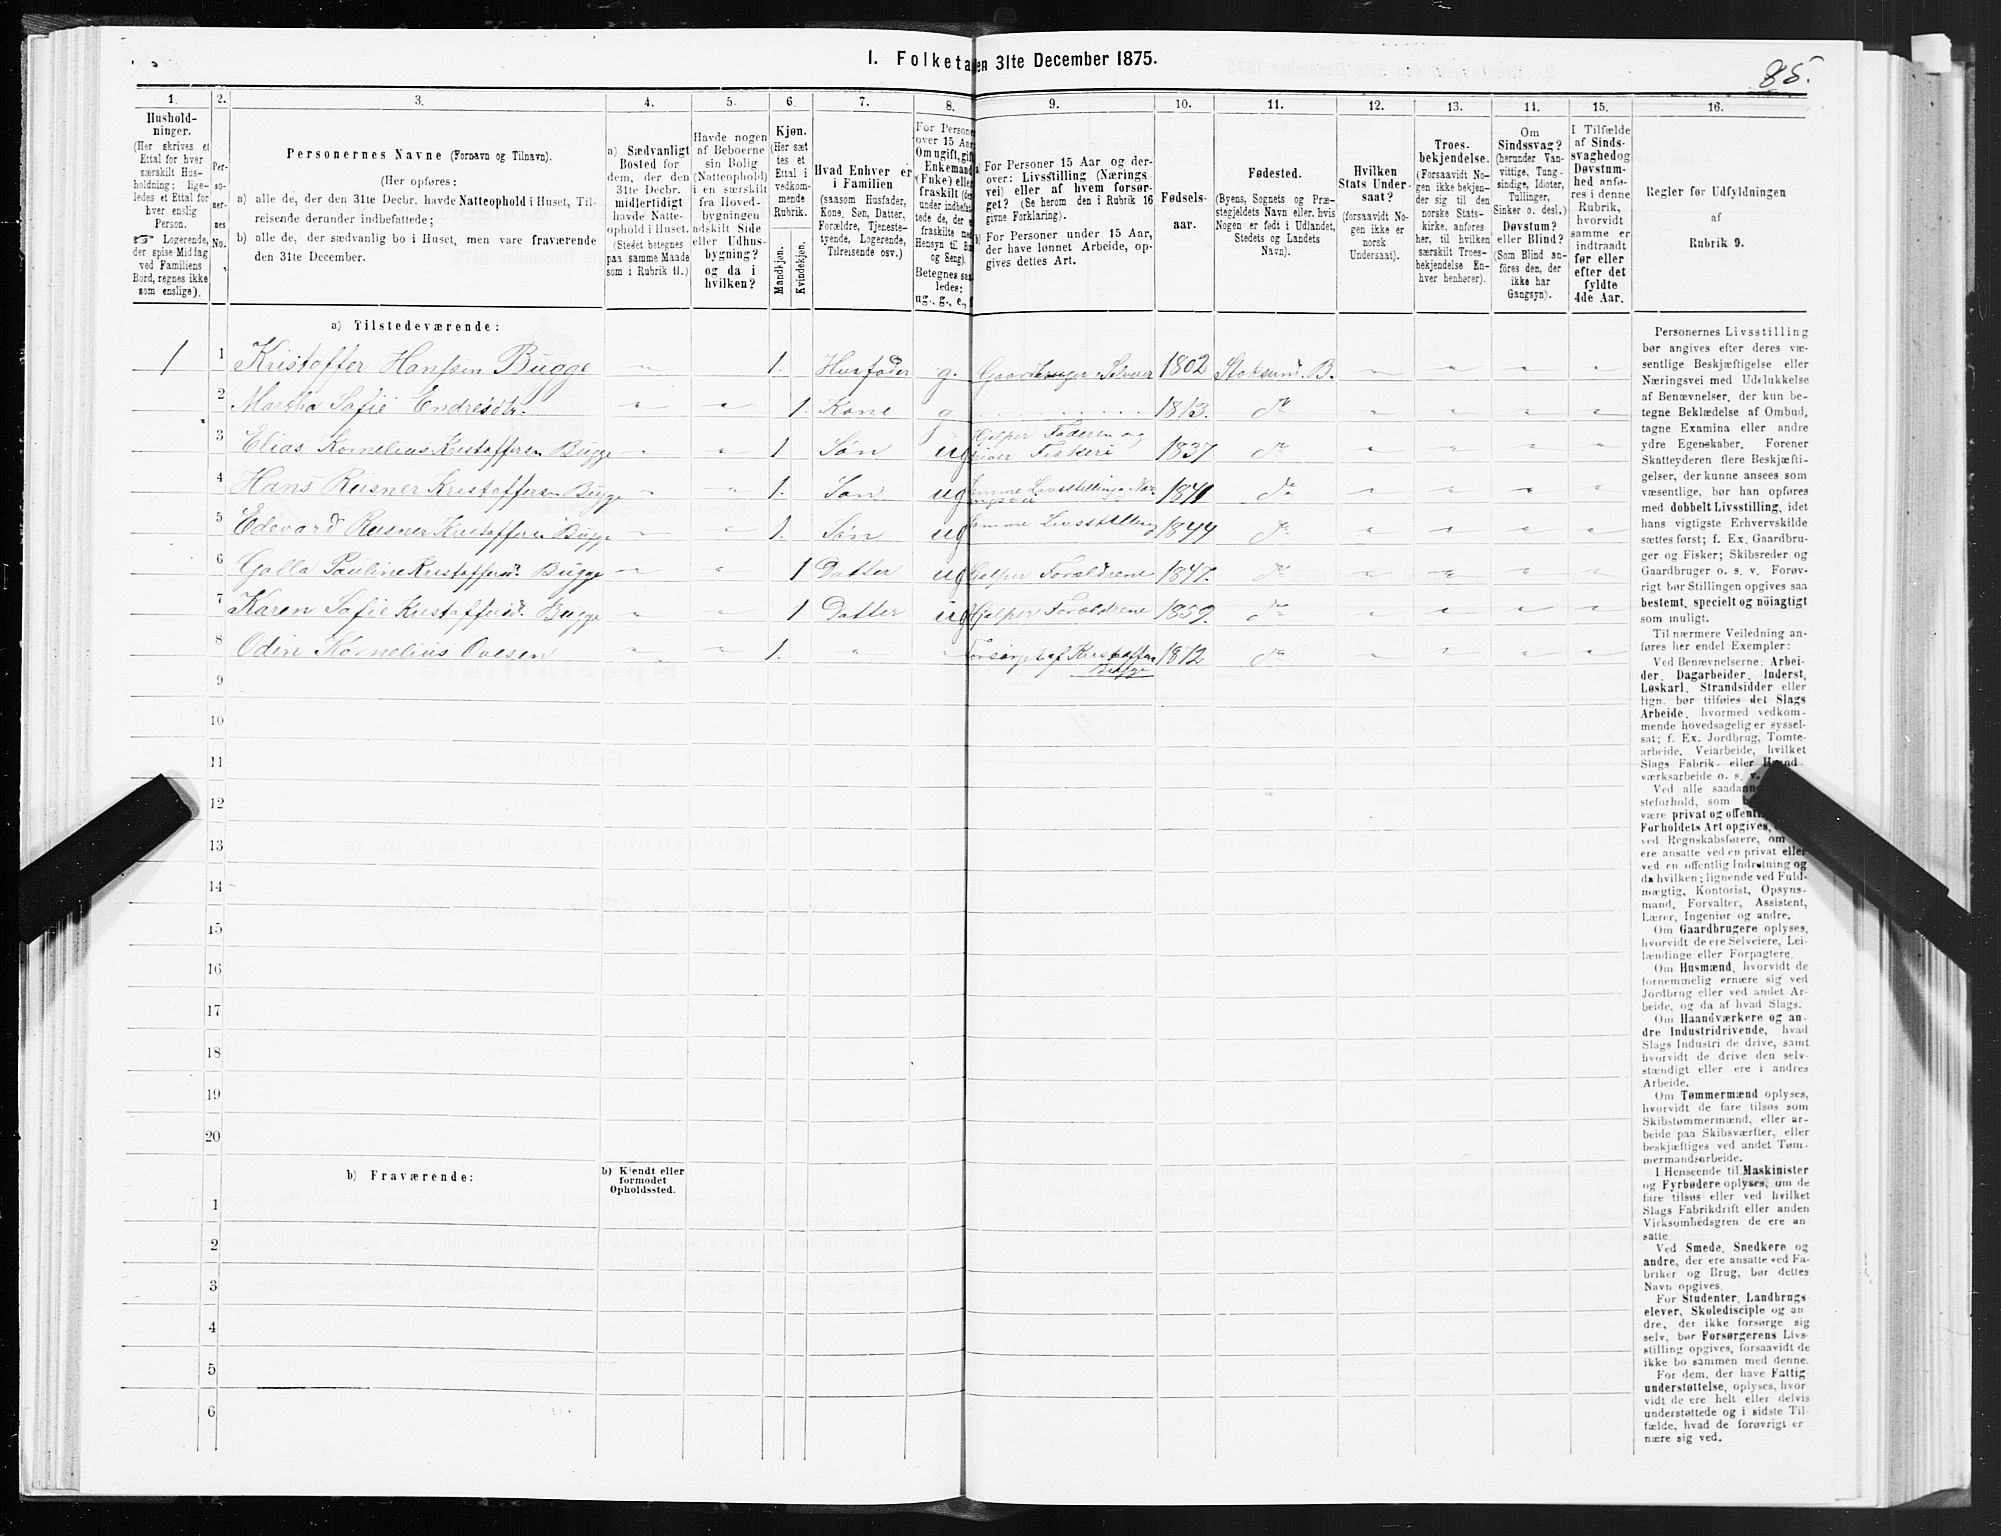 I. Folketa en 31te December 1875.
85.
1. 2. 3. 4. 5. 6. 7. 8. 9. 10. 11. 12. 13. 14. 15. 16.
Hushold-
ninger.
(Her skrives et
Ettal for hver
særskilt Hus-
holdning; lige-
ledes et Ettal for
hver enslig
Person.
☞ Logerende,
der spise Middag
ved Familiens
Bord, regnes ikke
som enslige).
Per-
so-
ner-
nes
No.
Personernes Navne (Fornavn og Tilnavn).
(Her opføres:
a) alle de, der den 31te Decbr. havde Natteophold i Huset, Til-
reisende derunder indbefattede;
b) alle de, der sædvanlig bo i Huset, men vare fraværende
den 31te December.
a) Sædvanligt
Bosted for
dem, der den
31te Decbr.
midlertidigt
havde Natte-
ophold i Huset.
(Stedet betegnes
paa samme Maade
som i Rubrik 11.)
Havde nogen
af Beboerne
sin Bolig
(Natteophold)
i en særskilt
fra Hoved-
bygningen
adskilt Side
eller Udhus-
bygning?
og da i
hvilken?
Kjøn.
(Her sæt-
tes et
Ettal i
vedkom-
mende
Rubrik.
Mandkjøn.
Kvindekjøn.
Hvad Enhver er
i Familien
(saasom Husfader,
Kone, Søn, Datter,
Forældre, Tjeneste-
tyende, Logerende,
Tilreisende osv.).
For Persone
over 15 Aar
Om ugift, gift
Enkemand
(Enke) elle
fraskilt (de
under indbefat-
tede de, der
fraskilte me
Hensyn til B
og Seng).
Betegnes saa
ledes:
ug., g., e.,
a) For Personer 15 Aar og der-
over: Livsstilling (Nærings-
vei) eller af hvem forsør-
get? (Se herom den i Rubrik 16
givne Forklaring).
b) For Personer under 15 Aar,
der have lønnet Arbeide, op-
gives dettes Art.
Fødsels-
aar.
Fødested.
(Byens, Sognets og Præ-
stegjeldets Navn eller, hvis
Nogen er født i Udlandet,
Stedets og Landets
Navn).
Hvilken
Stats Under-
saat?
(forsaavidt No-
gen ikke er
norsk
Undersaat).
Troes-
bekjendelse.
(Forsaavidt No-
gen ikke bekjen-
der sig til den
norske Stats-
kirke, anføres
her, til hvilken
særskilt Troes-
bekjendelse En-
hver henhører).
Om
Sindssvag?
(herunder Van-
vittige, Tung-
sindige, Idioter,
Tullinger,
Sinker o. desl.)
Døvstum?
eller Blind?
(Som Blind an-
føres den, der
ikke har
Gangsyn).
I Tilfælde
af Sinds-
svaghed og
Døvstum-
hed anfø-
res i denne
Rubrik,
hvorvidt
samme er
indtraadt
før eller
efter det
fyldte
4de Aar.
Regler for Udfyldningen
af
Rubrik 9.
a) Tilstedeværende:
1 1 Kristoffer Hanssen Bugge " 1. Husfader g. Gaardbruger Selveier 1802 Stoksund. B. " " " "
2 Martha Sofie Endresdtr. " " 1. Kone g 1813. do " " " "
3 Elias Kornelius Kristoffersen Bugge " " 1 Søn ug Hjelper Faderen og driver Fiskeri 1837 do " " " "
4 Hans Reisner Kristoffersen Bugge " " 1. Søn ug Samme Livsstilling og Næringsvei 1841 do " " " "
5 Edevard Reisner Kristoffersen Bugge " " 1. Søn ug Samme Livsstilling 1844 do " " " "
6 Golla Pauline Kristoffersdr. Bugge " " 1 Datter ug Hjelper Forældrene 1847. do " " " "
7 Karen Sofie Kristoffersdr. Bugge " " 1 Datter ug Hjelper Forældrene 1859. do " " " "
8 Odin Kornelius Ovesen " " 1. " " Forsørget af Kristoffer Bugge 1872 do " " " "
9
10
11
12
13
14
15
16
17
18
19
20
b) Fraværende:
b) Kjendt eller
formodet
Opholdssted.
1
2
3
4
5
6
Personernes Livsstilling
bør angives efter deres væ-
sentlige Beskjæftigelse eller
Næringsvei med Udelukkelse
af Benævnelser, der kun be-
tegne Beklædelse af Ombud,
tagne Examina eller andre
ydre Egenskaber. Forener
Skatteyderen flere Beskjæfti-
gelser, der kunne ansees som
væsentlige, bør han opføres
med dobbelt Livsstilling, idet
hans vigtigste Erhvervskilde
sættes først; f. Ex. Gaardbru-
ger og Fisker; Skibsreder og
Gaardbruger o. s. v. Forøv-
rigt bør Stillingen opgives saa
bestemt, specielt og nøiagtigt
som muligt.
Til nærmere Veiledning an-
føres her endel Exempler:
Ved Benævnelserne: Arbei-
der, Dagarbeider, Inderst,
Løskarl, Strandsidder eller
lign. bør tilføies det Slags
Arbeide, hvormed vedkom-
mende hovedsagelig er syssel-
sat; f. Ex. Jordbrug, Tomte-
arbeide, Veiarbeide, hvilket
Slags Fabrik- eller Haand-
værksarbeide o. s. v.
Ved alle saadan
steforhold, som
være privat og offent
Forholdets Art opgives,
ved Regnskabsførere, om
ere ansatte ved en privat eller
ved en offentlig Indretning og
da hvilken; lignende ved Fuld-
mægtig, Kontorist, Opsyns-
mand, Forvalter, Assistent,
Lærer, Ingeniør og andre.
Om Gaardbrugere oplyses,
hvorvidt de ere Selveiere, Lei-
lændinge eller Forpagtere.
Om Husmænd, hvorvidt de
fornemmelig ernære sig ved
Jordbrug eller ved andet Ar-
beide, og da af hvad Slags.
Om Haandværkere og an-
dre Industridrivende, hvad
Slags Industri de drive, samt
hvorvidt de drive den selv-
stændigt eller ere i andres
Arbeide.
Om Tømmermænd oplyses,
hvorvidt de fare tilsøs som
Skibstømmermænd, eller ar-
beide paa Skibsværfter, eller
beskjæftiges ved andet Tøm-
mermandsarbeide.
I Henseende til Maskinister
og Fyrbødere oplyses, om de
fare tilsøs eller ved hvilket
Slags Fabrikdrift eller anden
Virksomhedsgren de ere an-
satte.
Ved Smede, Snedkere og
andre, der ere ansatte ved Fa-
briker og Brug, bør dettes
Navn opgives.
For Studenter, Landbrugs-
elever, Skoledisciple og an-
dre, der ikke forsørge sig
selv, bør Forsørgerens Livs-
stilling opgives, forsaavidt de
ikke bo sammen med denne.
For dem, der have Fattig-
understøttelse, oplyses, hvor-
vidt de ere helt eller delvis
understøttede og i sidste Til-
fælde, hvad de forøvrigt er-
nære sig ved.